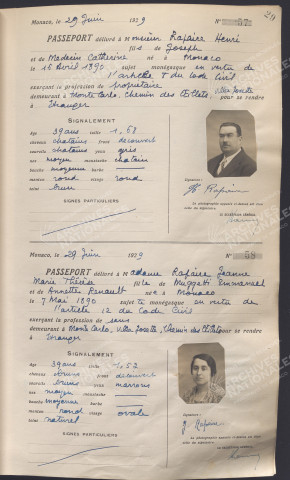 211
Monaco, le 29 Juin 1929 N° 57
PASSEPORT délivré à Monsieur Rapaire Henri
fils de Joseph
et de Médecin Catherine né à Monaco
le 15 Avril 1890 sujet monégasque en vertu de
l'article 8 du Code Civil
exerçant la profession de propriétaire
demeurant à Monte Carlo, Chemin des Œillets, villa Josette pour se rendre
à Etranger
SIGNALEMENT
âge 39 ans taille 1,68
cheveux chatains front découvert
sourcils chatains yeux gris
nez moyen moustache chatain
bouche moyenne barbe
menton rond visage rond
teint brun
SIGNES PARTICULIERS
Signature :
H Rapaire
LE SECRÉTAIRE GÉNÉRAL,
Monaco, le 29 Juin 1929 N° 58
PASSEPORT délivré à Madame Rapaire Jeanne
Marie Thérèse fille de Muggetti Emmanuel
et Annette Renault née à Monaco
le 7 Mai 1890 sujette monégasque en vertu de
l'article 12 du Code Civil
exerçant la profession de sans
demeurant à Monte Carlo, villa Josette, Chemin des Œillets pour se rendre
à Etranger
SIGNALEMENT
âge 39 ans taille 1,52
cheveux bruns front découvert
sourcils bruns yeux marrons
nez moyen moustache
bouche moyenne barbe
menton rond visage ovale
teint naturel
SIGNES PARTICULIERS
Signature :
J. Rapaire
LE SECRÉTAIRE GÉNÉRAL,